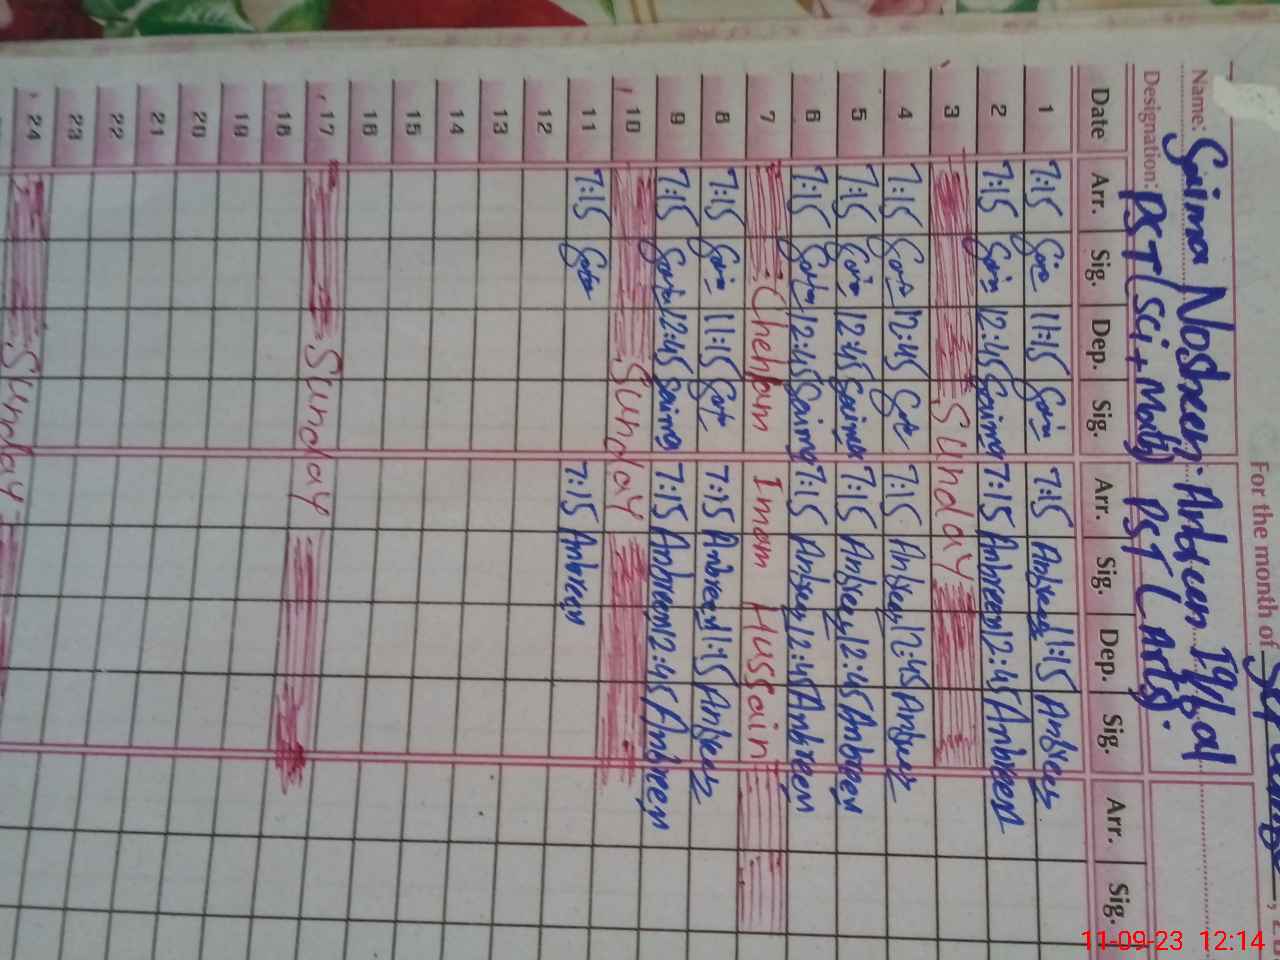 For the month of
Name: Saima Nosheen. Ambreen Iqbal
Designation: PST (Sci + Math) PST (Arts).
Date Arr. Sig. Dep. Sig. Arr. Sig. Dep. Sig. Arr. Sig.
1 7:15 11:15 7:15 Ambreen 11:15 Ambreen
2 7:15 12:45 Saima 7:15 Ambreen 12:45 Ambreen
3 Sunday
4 7:15 12:45 7:15 Ambreen 12:45 Ambreen
5 7:15 12:45 Saima 7:15 Ambreen 12:45 Ambreen
6 7:15 12:45 Saima 7:15 Ambreen 12:45 Ambreen
7 Chehlam Imam Hussain
8 7:15 11:15 7:15 Ambreen 11:15 Ambreen
9 7:15 12:45 Saima 7:15 Ambreen 12:45 Ambreen
10 Sunday
11 7:15 7:15 Ambreen
12
13
14
15
16
17 Sunday
18
19
20
21
22
23
24 Sunday
11-09-23 12:14